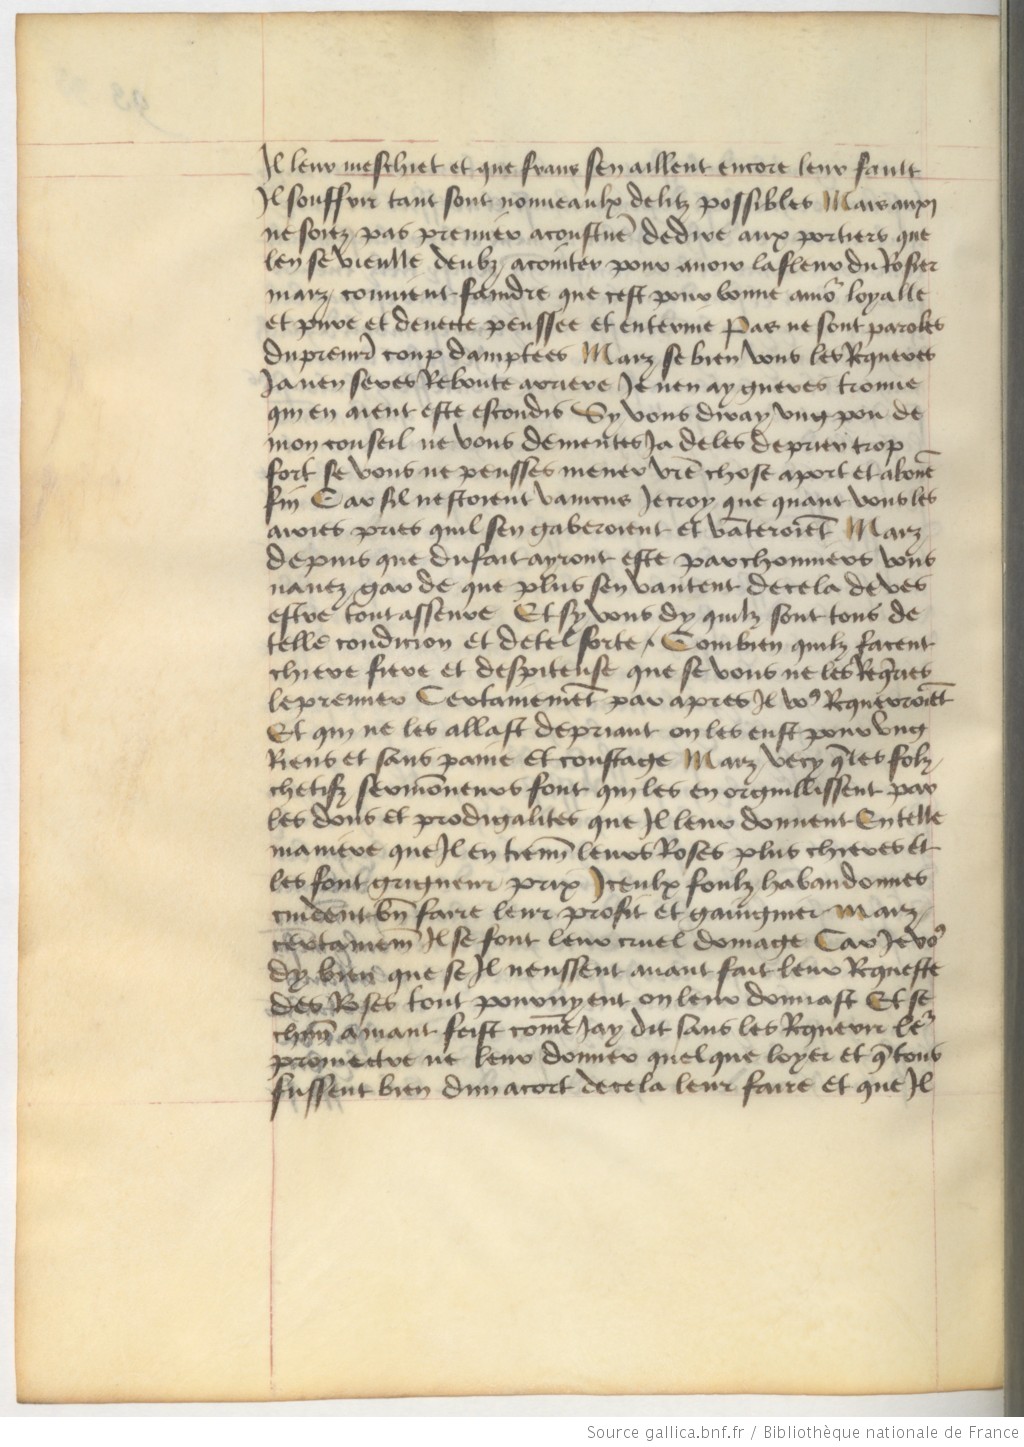 Il leur meschiet et que frans sen aillent encore leur fault
Il souffrir tant sont nouueaulx delitz possibles Mais auxi
ne soiez pas premier acoustume dedire aux portiers que
len se vieulle deulz acointer pour auoir lafleur du Rosier
marz conuient faindre que cest pour bonne amor loyalle
et pure et denecte penssee et enterine Pas ne sont paroles
dupremier coup damptees Marz se bien vous les Requeres
Ja nen seres Reboute arriere Je nen ay gueres trouue
qui en aient este escondis Sy vous diray vng pou de
mon conseil ne vous dementes Ja deles deprier trop
fort se vous ne pensses mener vrē chose aport et abonē
fin Car sil nestoient vaincus Je croy que quant vous les
auries pries quil sen gaberoient et vāteroiēt Marz
depuis que dufait ayront este parchonniers vous
nauez garde que plus sen vantent decela deues
estre tout asseure Et sy vous dy quilz sont tous de
telle condicion et detel sorte Combien quilz facent
chiere fiere et despiteuse que se vous ne les Reqeries
lepremier Certainemēt par apres Il vo9 Requerroiēt
Et qui ne les allast depriant on les eust pour vng
Riens et sans paine et coustage Marz vecy q̄ les folz
chetifz sermōneurs font qui les en orguillissent par
les dons et prodigalites que Il leur donnent En telle
maniere que Il en tienn̄ leurs Roses plus chieres et
les font grigneur prix Iceulx foulz habandonnes
cuident bn̄ faire leur profit et gaingnier Marz
certainem̄ Il se font leur cruel domage Car Je vo9
dy bien que se Il neussent auant fait leur Requeste
des Roses tout pour nyent on leur donnast Et se
chun̄ amant feist comē Jay dit sans les Requerir le
promectre ne leur donner quelque loyer et q̄ tous
fussent bien dun acort decela leur faire et que Il
Source gallica.bnf.fr / Bibliothèque nationale de France